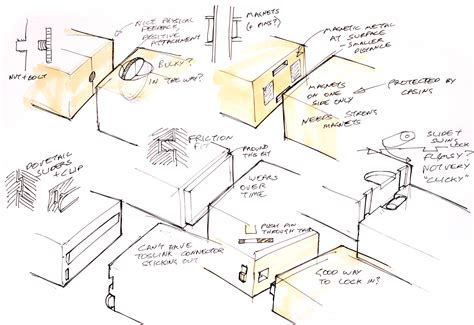 NICE PHYSICAL
FEEDBACK,
POSITIVE
ATTACHMENT
NUT + BOLT
BULKY?
IN THE WAY?
MAGNETS
MAGNETIC METAL
AT SURFACE
- SMALLER
DISTANCE
MAGNETS
ON ONE
SIDE ONLY
PROTECTED BY
CASING
NEEDS STRONG
MAGNETS
DOVETAIL
SLIDERS
+ CLIP
FRICTION
FIT
AROUND
THE
WEARS
OVER
TIME
SWING
LOCK
FLIMSY?
NOT VERY
"CLICKY"
PUSH PIN
THROUGH
CAN'T HAVE
TOSLINK CONNECTOR
STICKING OUT
GOOD WAY
TO LOCK IN?